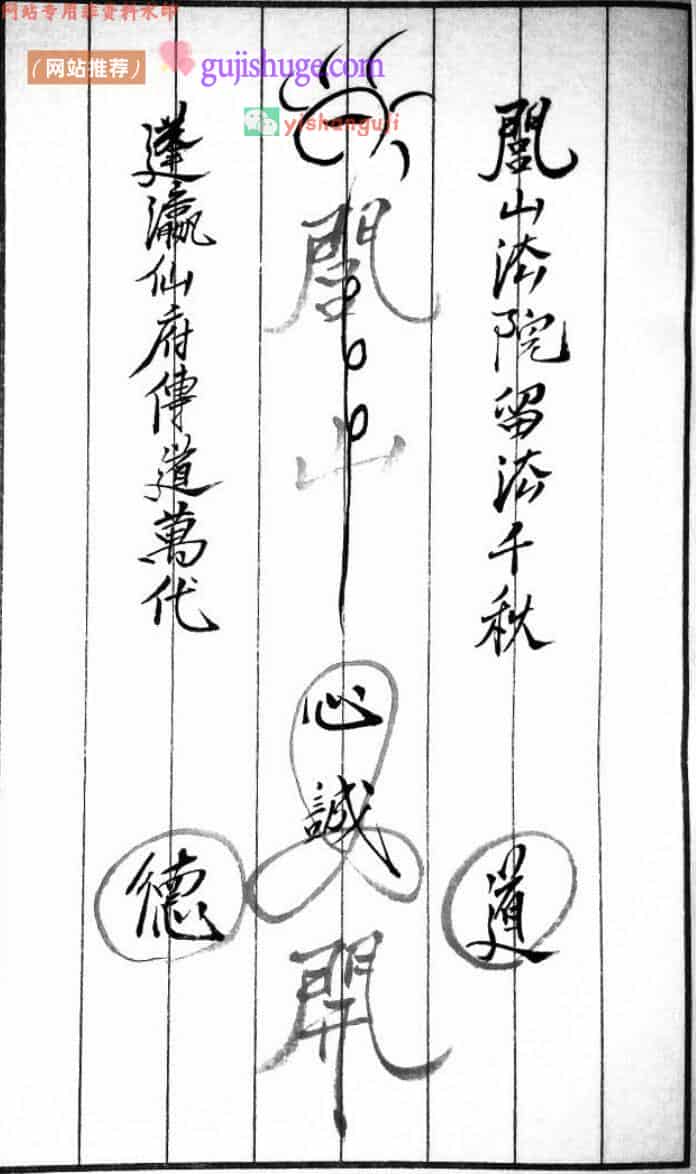 网站专用非资料水印
（网站推荐）
gujishuge.com
yishanguji
閭山法院留法千秋
閭山
心誠
開
蓬瀛仙府傳道萬代
道
德